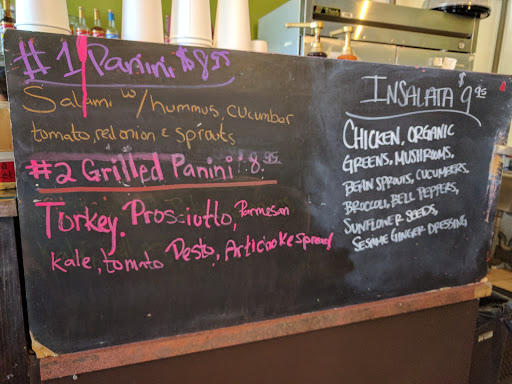 #1 Panini $8.95
Salami w/hummus, cucumbar
tomato, red onion & sprouts
#2 Grilled Panini $8.95
Torkey. Prosciutto, Parmesan
kale, tomato Pesto, Articnoke spread
INSALATA $9.95
CHICKEN, ORGANIC
GREENS, MUSHROOMS,
BEAN SPROUTS, CUCUMBERS,
BROCCOLI, BELL PEPPERS,
SUNFLOWER SEEDS,
SESAME GINGER DRESSING